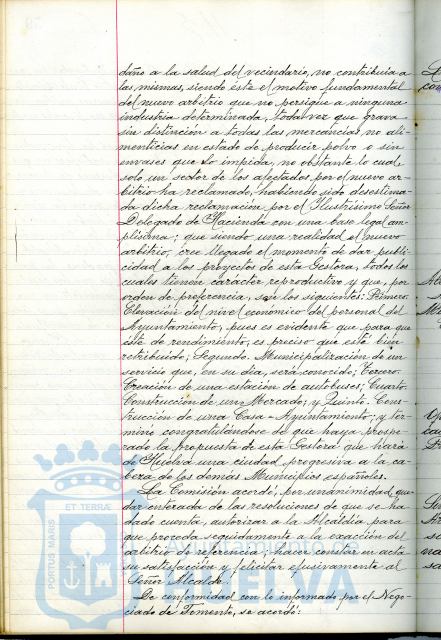 daño a la salud del vecindario, no contribuía a
las mismas, siendo éste el motivo fundamental
del nuevo arbitrio que no persigue a ninguna
industria determinada, toda vez que grava
sin distinción a todas las mercancías no ali-
menticias en estado de producir polvo o sin
envases que lo impida, no obstante lo cual
solo un sector de los afectados por el nuevo ar-
bitrio ha reclamado, habiendo sido desestima-
da dicha reclamación por el Ilustrísimo Señor
Delegado de Hacienda con una base legal am-
plísima; que siendo una realidad el nuevo
arbitrio, cree llegado el momento de dar publi-
cidad a los proyectos de esta Gestora, todos los
cuales tienen carácter reproductivo y que, por
orden de preferencia, son los siguientes: Primero.
Elevación del nivel económico del personal del
Ayuntamiento, pues es evidente que para que
éste de rendimiento, es preciso que esté bien
retribuido; Segundo. Municipalización de un
servicio que, en su día, será conocido; Tercero.
Creación de una estación de autobuses; Cuarto.
Construcción de un Mercado; y Quinto. Cons-
trucción de una Casa-Ayuntamiento; y ter-
minó congratulándose de que haya prospe-
rado la propuesta de esta Gestora que hará
de Huelva una ciudad progresiva a la ca-
beza de los demás Municipios españoles.
La Comisión acordó, por unanimidad, que-
dar enterada de las resoluciones de que se ha
dado cuenta, autorizar a la Alcaldía para
que proceda seguidamente a la exacción del
arbitrio de referencia; hacer constar en acta
su satisfacción y felicitar efusivamente al
Señor Alcalde.
De conformidad con lo informado por el Nego-
ciado de Fomento, se acordó:
PORTUS MARIS
ET TERRÆ
Ayuntamiento
HUELVA